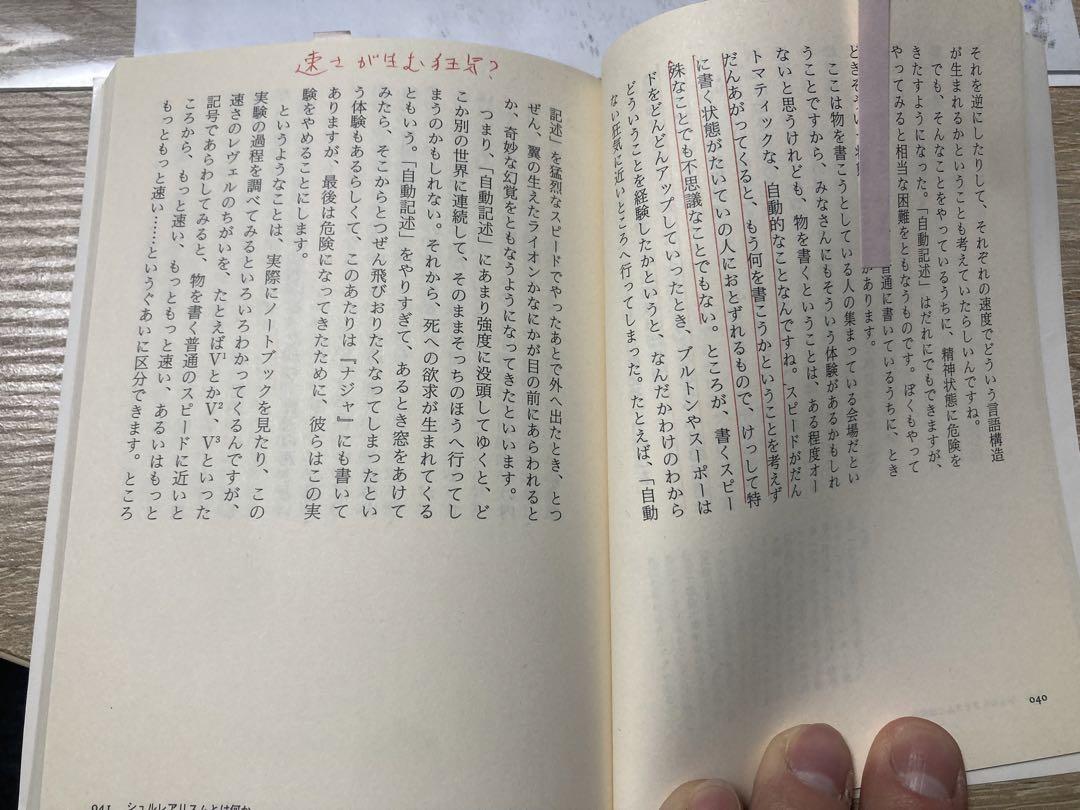 それを逆にしたりして、それぞれの速度でどういう言語構造
が生まれるかということも考えていたらしいんですね。
でも、そんなことをやっているうちに、精神状態に危険を
きたすようになった。「自動記述」はだれにでもできますが、
やってみると相当な困難をともなうものです。ぼくもやって
普通に書いているうちに、とき
があります。
ここは物を書こうとしている人の集まっている会場だとい
うことですから、みなさんにもそういう体験があるかもしれ
ないと思うけれども、物を書くということは、ある程度オー
トマティックな、自動的なことなんですね。スピードがだん
だんあがってくると、もう何を書こうかということを考えず
に書く状態がたいていの人におとずれるもので、けっして特
殊なことでも不思議なことでもない。ところが、書くスピー
ドをどんどんアップしていったとき、ブルトンやスーポーは
どういうことを経験したかというと、なんだかわけのわから
ない狂気に近いところへ行ってしまった。たとえば、「自動
040
速さが生む狂気?
記述」を猛烈なスピードでやったあとで外へ出たとき、とつ
ぜん、翼の生えたライオンかなにかが目の前にあらわれると
か、奇妙な幻覚をともなうようになってきたといいます。
つまり、「自動記述」にあまり強度に没頭してゆくと、ど
こか別の世界に連続して、そのままそっちのほうへ行ってし
まうのかもしれない。それから、死への欲求が生まれてくる
ともいう。「自動記述」をやりすぎて、あるとき窓をあけて
みたら、そこからとつぜん飛びおりたくなってしまったとい
う体験もあるらしくて、このあたりは『ナジャ』にも書いて
ありますが、最後は危険になってきたために、彼らはこの実
験をやめることにします。
というようなことは、実際にノートブックを見たり、この
実験の過程を調べてみるといろいろわかってくるんですが、
速さのレヴェルのちがいを、たとえばV¹とかV²、V³といった
記号であらわしてみると、物を書く普通のスピードに近いと
ころから、もっと速い、もっともっと速い、あるいはもっと
もっともっと速い……というぐあいに区分できます。ところ
041 シュルレアリスムとは何か